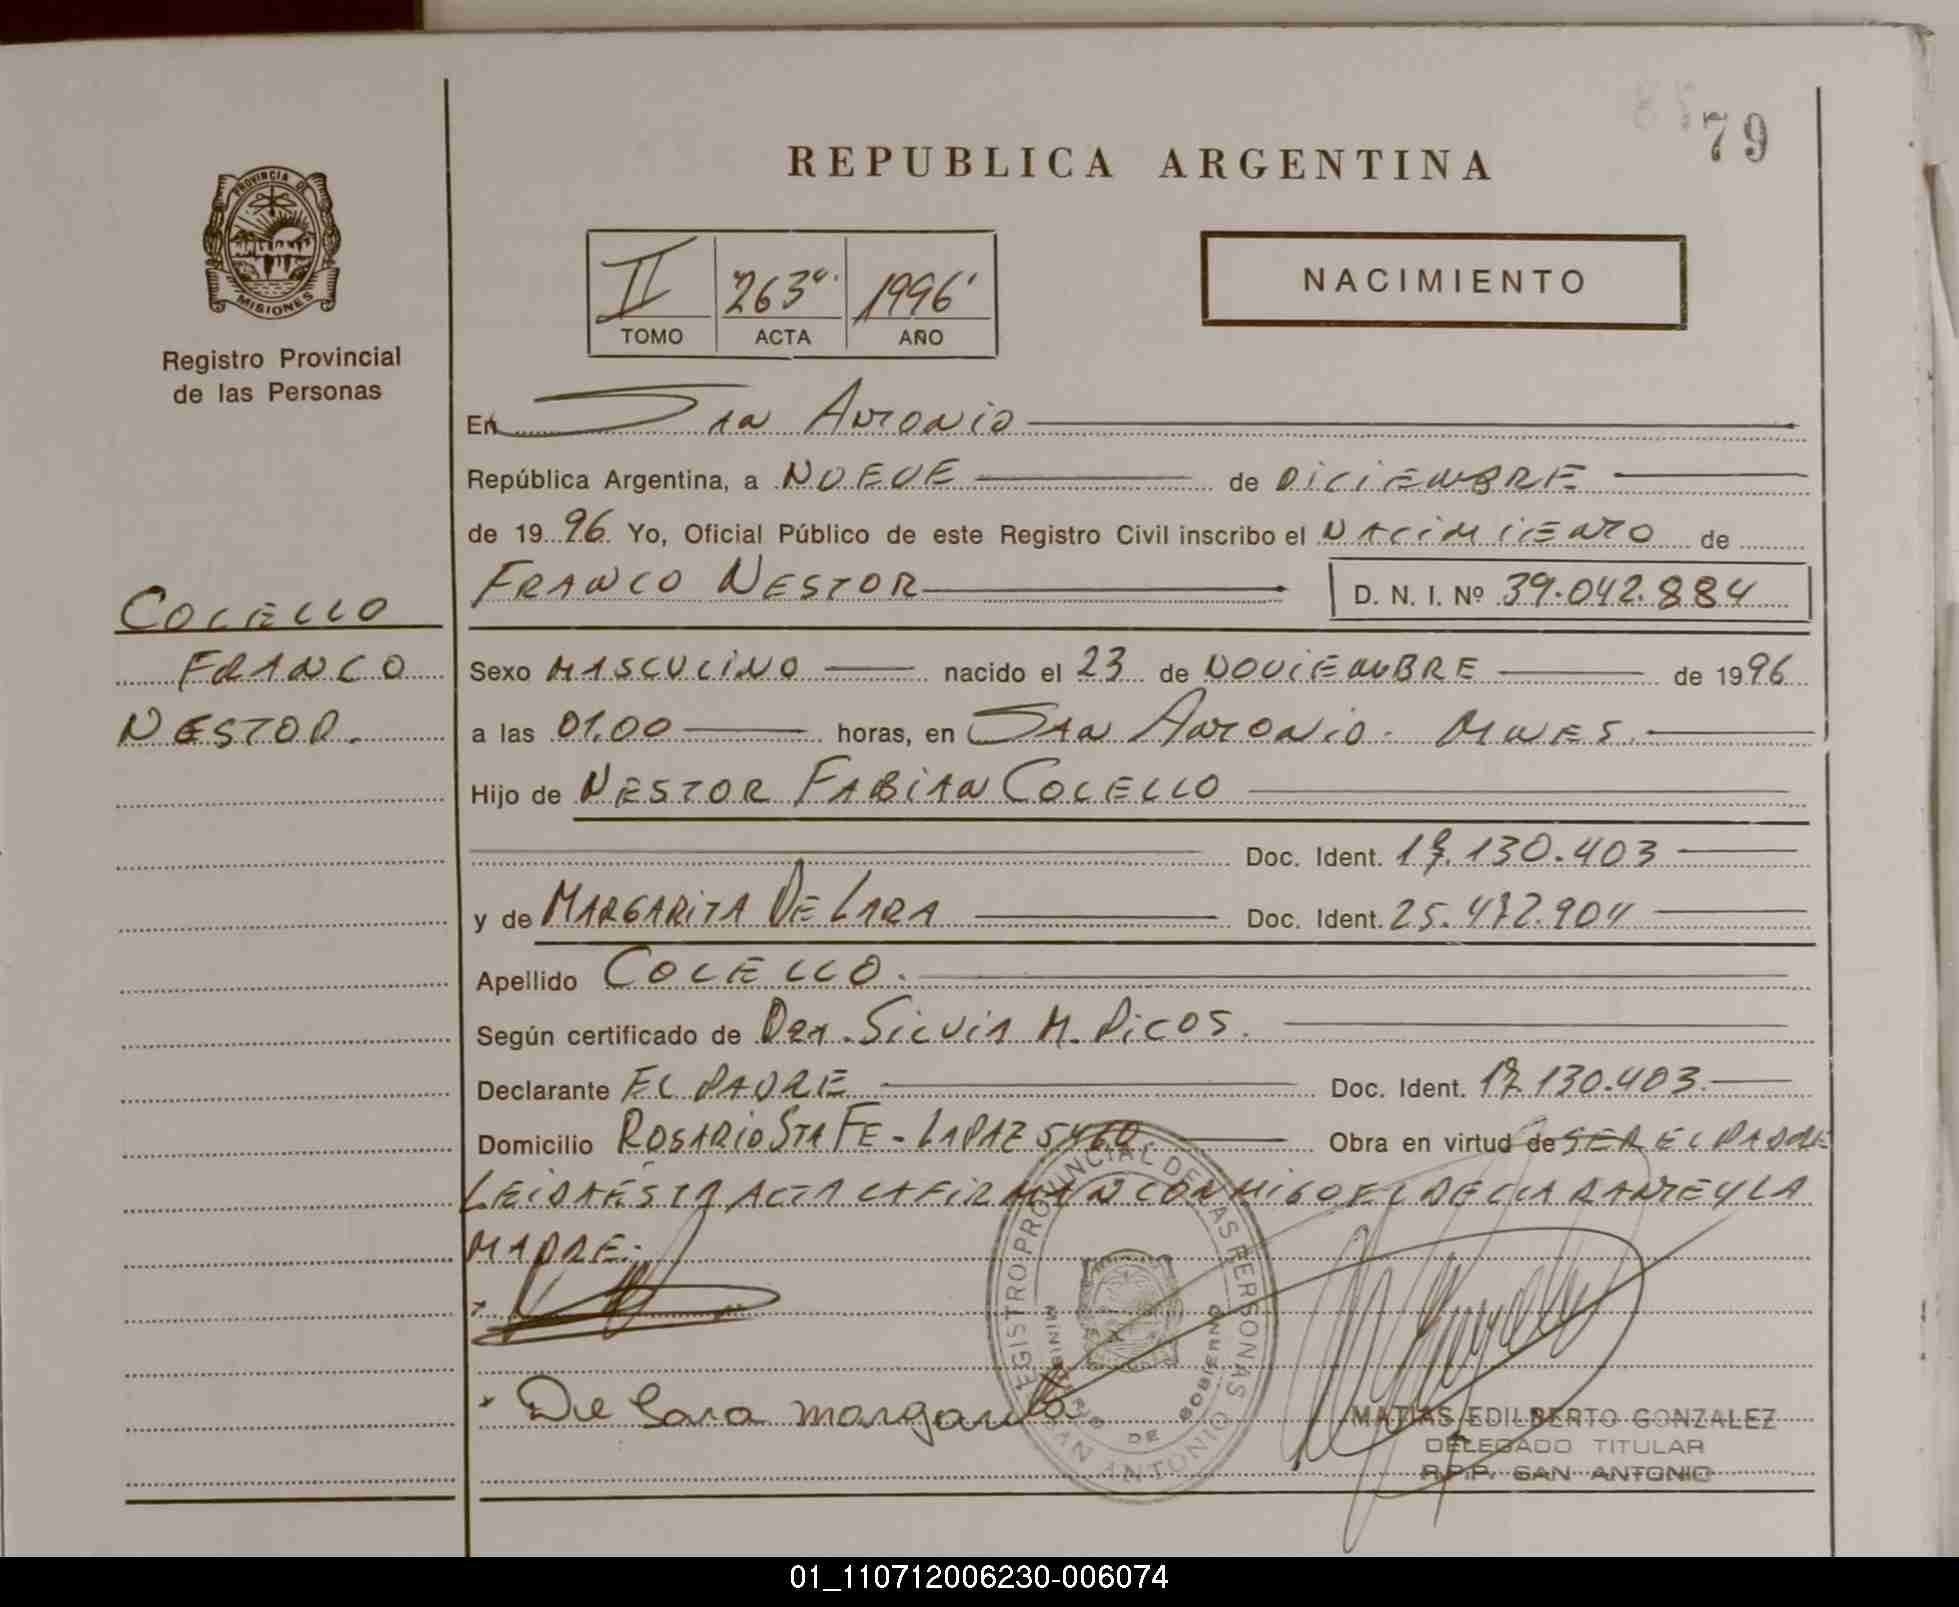 79
REPUBLICA ARGENTINA
PROVINCIA DE
MISIONES
Registro Provincial
de las Personas
II 263 1996
TOMO ACTA AÑO
NACIMIENTO
En San Antonio
República Argentina, a NUEVE de DiCiEMBRE
de 1996 Yo, Oficial Público de este Registro Civil inscribo el NACiMiENTO de
FRANCO NESTOR D. N. I. Nº 39.042.884
COLELLO
FRANCO
NESTOR.
Sexo MASCULiNO nacido el 23 de NOViEMBRE de 1996
a las 01.00 horas, en San Antonio. Mnes.
Hijo de NESTOR FABiAN COLELLO
Doc. Ident. 17.130.403
y de MARGARiTA DE LARA Doc. Ident. 25.472.904
Apellido COLELLO.
Según certificado de Dra. SiLViA M. PiCOS.
Declarante EL PADRE Doc. Ident. 17.130.403
Domicilio ROSARiO STA FE - LA PAZ 5460 Obra en virtud de SER EL PADRE
LEiDA ÉSTA ACTA LA FiRMAN CONMiGO EL DECLARANTE Y LA
MADRE.
De Lara margarita
REGISTRO PROVINCIAL DE LAS PERSONAS
MINISTERIO DE GOBIERNO
SAN ANTONIO
MATIAS EDILBERTO GONZALEZ
DELEGADO TITULAR
R.P.P. SAN ANTONIO
01_110712006230-006074